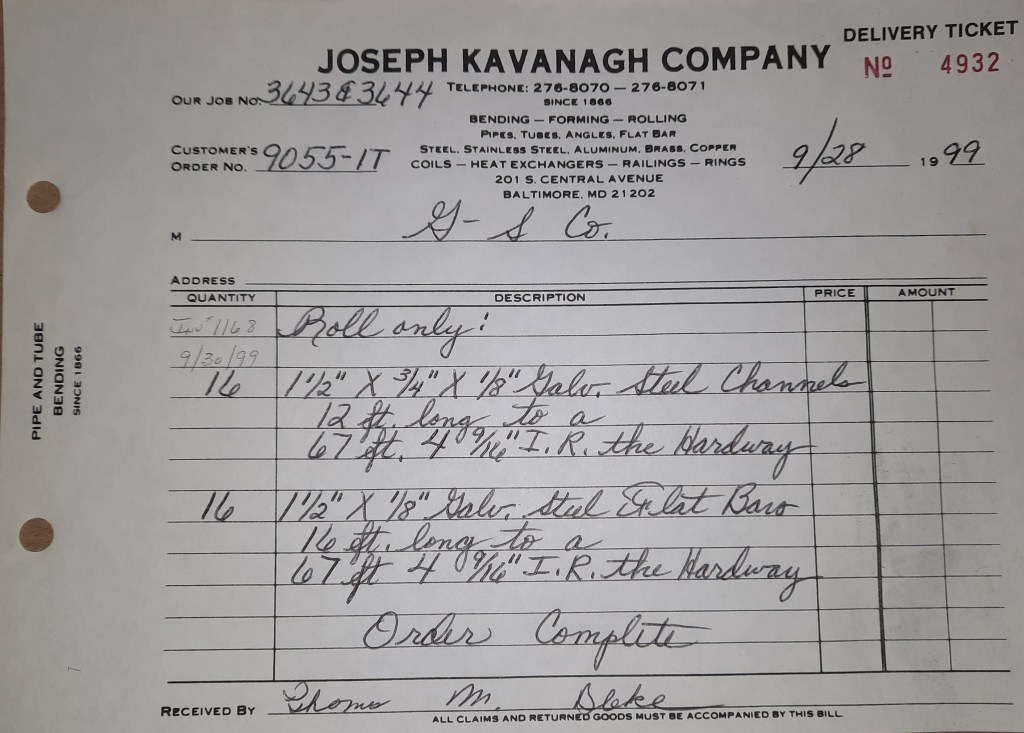 DELIVERY TICKET
JOSEPH KAVANAGH COMPANY
Nº 4932
OUR JOB NO. 3643 & 3644
TELEPHONE: 276-8070 — 276-8071
SINCE 1866
BENDING — FORMING — ROLLING
PIPES, TUBES, ANGLES, FLAT BAR
CUSTOMER'S ORDER NO. 9055-1T
STEEL, STAINLESS STEEL, ALUMINUM, BRASS, COPPER
COILS — HEAT EXCHANGERS — RAILINGS — RINGS
9/28 1999
201 S. CENTRAL AVENUE
BALTIMORE, MD 21202
M G-S Co.
ADDRESS
QUANTITY DESCRIPTION PRICE AMOUNT
Inv# 1168 Roll only:
9/30/99
16 1 1/2" X 3/4" X 1/8" Galv. Steel Channels
12 ft. long to a
67 ft. 4 9/16" I.R. the Hardway
16 1 1/2" X 1/8" Galv. Steel Flat Bars
16 ft. long to a
67 ft 4 9/16" I.R. the Hardway
Order Complete
RECEIVED BY Thomas M. Blake
ALL CLAIMS AND RETURNED GOODS MUST BE ACCOMPANIED BY THIS BILL
PIPE AND TUBE
BENDING
SINCE 1866